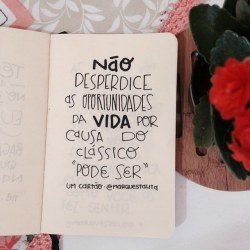 NÃO
DESPERDICE
AS OPORTUNIDADES
DA VIDA POR
CAUSA DO
CLÁSSICO
"PODE SER"
UM CARTÃO · @MARQUESTALITA